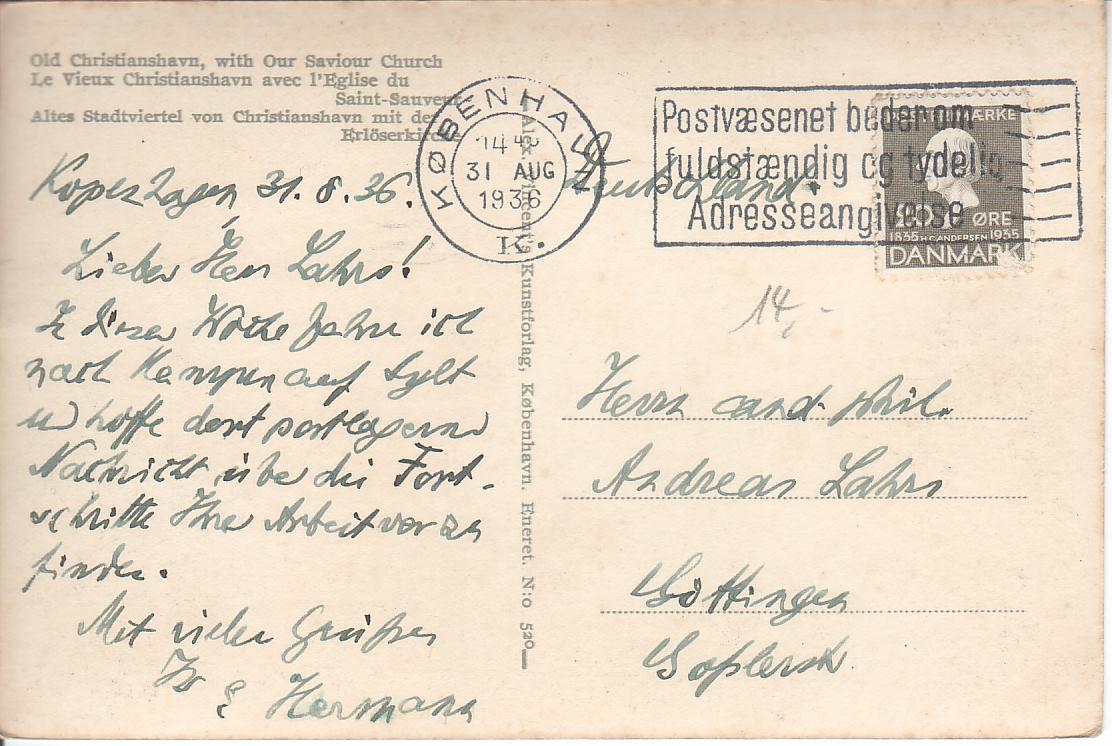 Old Christianshavn, with Our Saviour Church
Le Vieux Christianshavn avec l'Eglise du
Saint-Sauveur
Altes Stadtviertel von Christianshavn mit der
Erlöserkirche
KØBENHAVN
31 AUG
1936
K.
Postvæsenet beder om
fuldstændig og tydelig
Adresseangivelse
ØRE
1835 H.C. ANDERSEN 1935
DANMARK
Kopenhagen 31.8.36.
Lieber Herr Lahrs!
In dieser Woche fahre ich
nach Kampen auf Sylt
und hoffe dort postlagernd
Nachricht über die Fort-
schritte Ihrer Arbeit vorzu
finden.
Mit vielen Grüßen
Ihr
E Hermann
Kunstforlag, København. Eneret. N:o 520
Deutschland.
14,-
Herrn cand. phil.
Andreas Lahrs
Göttingen